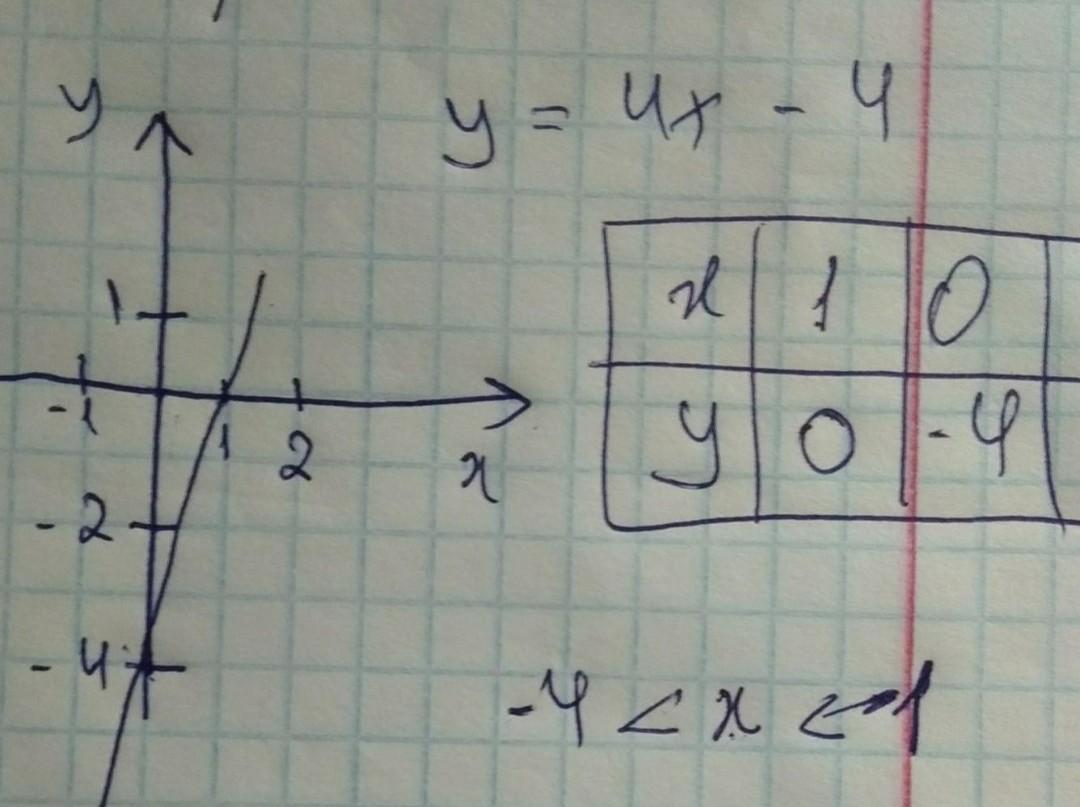 y
y = 4x - 4
1
x 1 0
-1 1 2 x
y 0 -4
-2
-4
-4 < x < -1